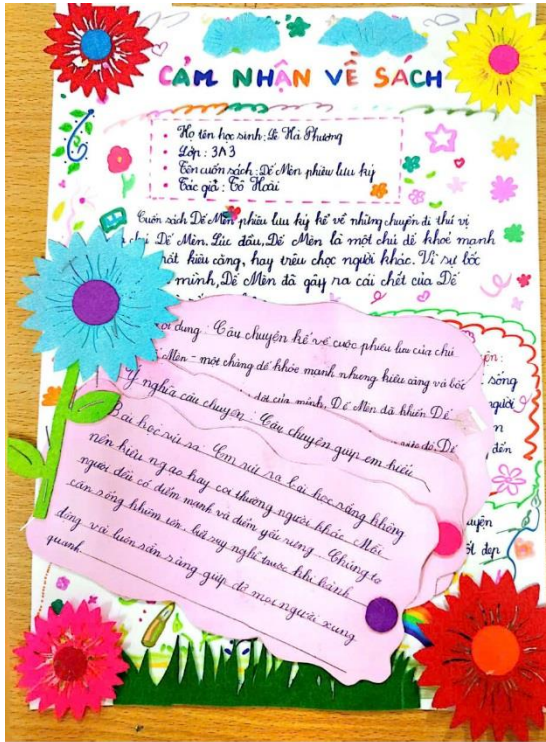 CẢM NHẬN VỀ SÁCH
Họ tên học sinh: Lê Hà Phương
Lớp: 3A3
Tên cuốn sách: Dế Mèn phiêu lưu ký
Tác giả: Tô Hoài
Cuốn sách Dế Mèn phiêu lưu ký kể về những chuyện đi thú vị
chú Dế Mèn. Lúc đầu, Dế Mèn là một chú dế khoẻ mạnh
rất kiêu căng, hay trêu chọc người khác. Vì sự bốc
mình, Dế Mèn đã gây ra cái chết của Dế
dung: Câu chuyện kể về cuộc phiêu lưu của chú
Mèn - một chàng dế khỏe mạnh nhưng kiêu căng và bốc
của mình, Dế Mèn đã khiến Dế
đó, Dế
Ý nghĩa câu chuyện: Câu chuyện giúp em hiểu
Bài học rút ra: Em rút ra bài học rằng không
nên kiêu ngạo hay coi thường người khác. Mỗi
người đều có điểm mạnh và điểm yếu riêng. Chúng ta
cần sống khiêm tốn, biết suy nghĩ trước khi hành
động và luôn sẵn sàng giúp đỡ mọi người xung
quanh
sống
người
đến
đẹp